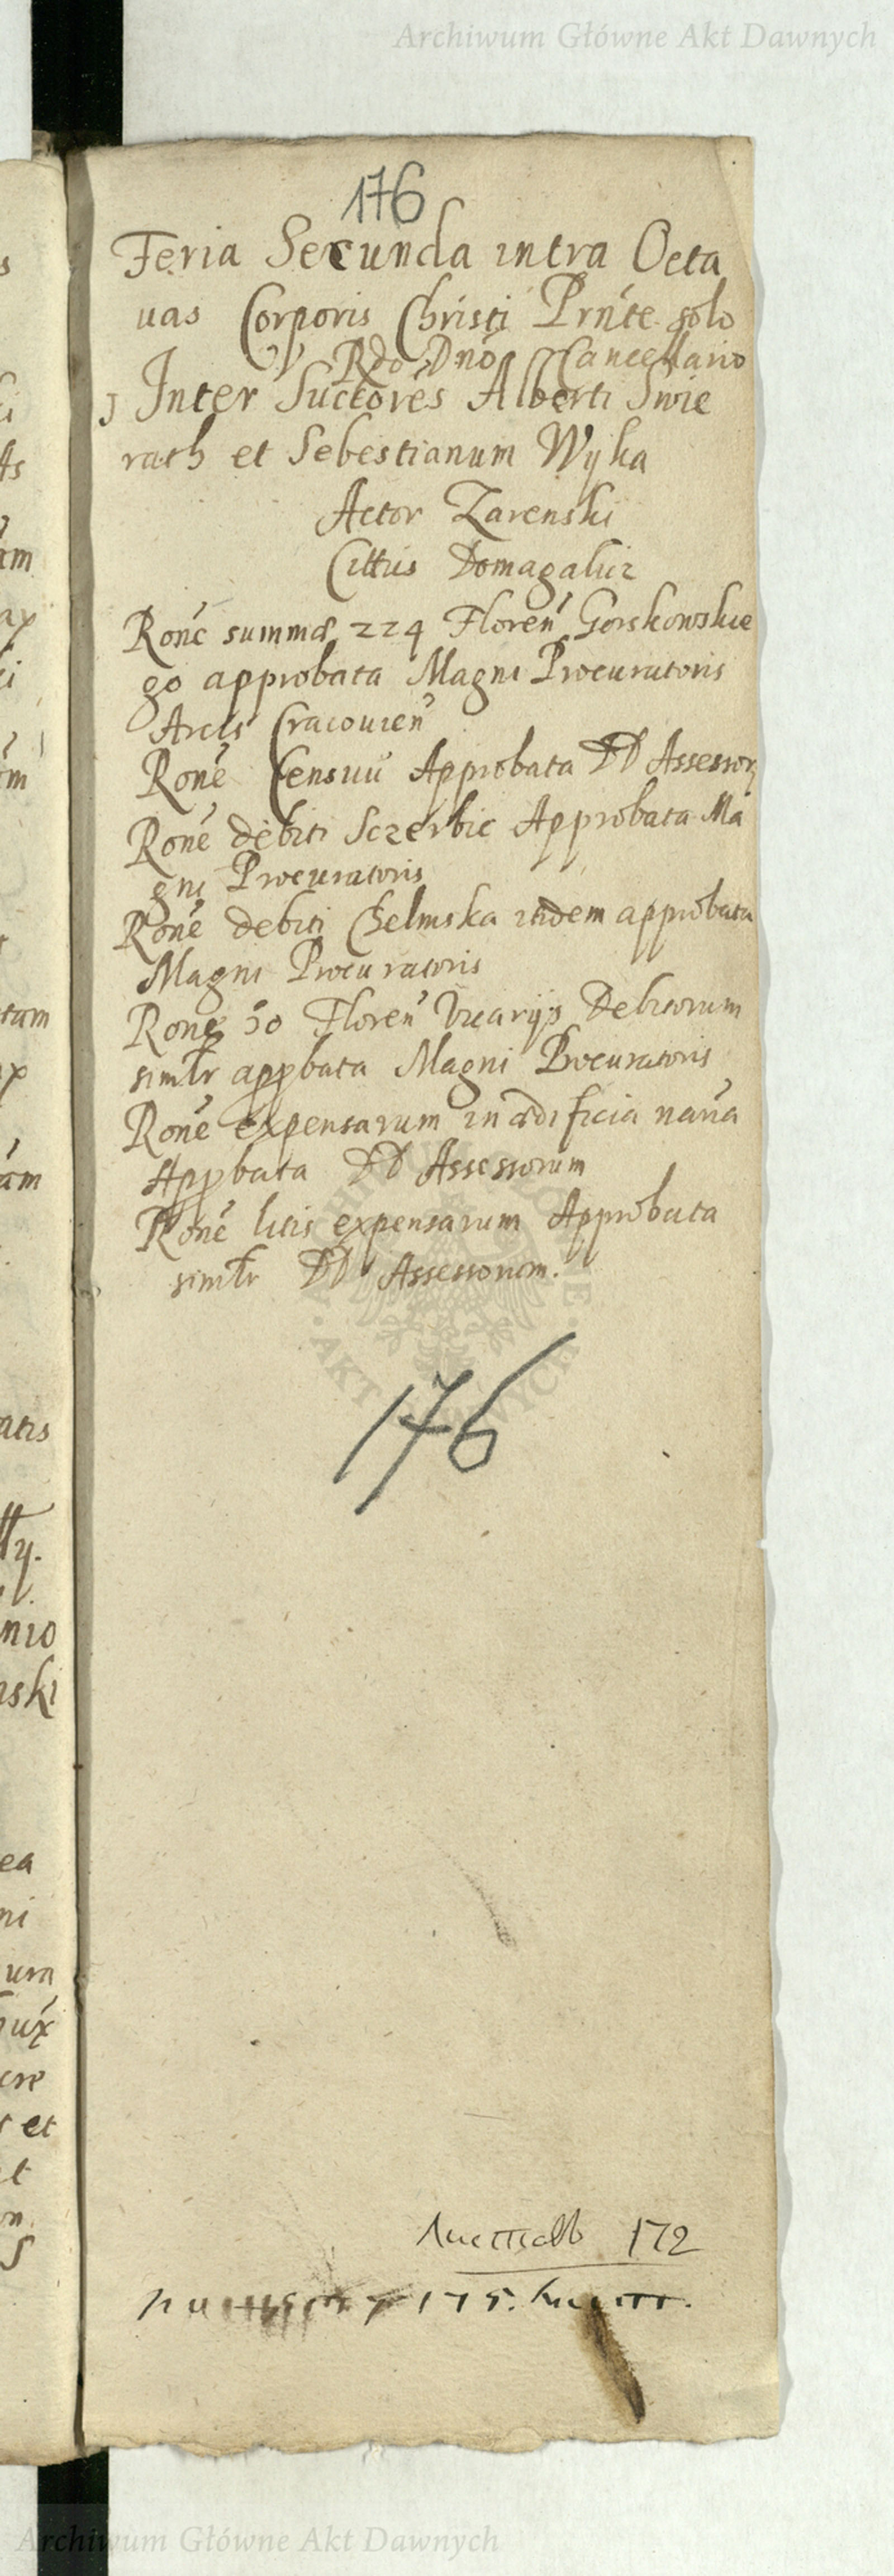 Archiwum Główne Akt Dawnych
176
Feria Secunda intra Octa
uas Corporis Christi Prńte solo
Rdo Dno Cancellario
Inter Suctores Alberti Swie
rath et Sebestianum Wyka
Actor Zarenski
Cittus Domagalicz
Rone summæ 224 Floren Gorskowskie
go approbata Magni Procuratoris
Arcis Cracouien
Rone Censuu Approbata DD Assessor
Rone debiti Sczerbic Approbata Ma
gni Procuratoris
Rone debiti Chelmska itidem approbata
Magni Procuratoris
Rone 50 Floren Vicarijs Debitorum
simlr appbata Magni Procuratoris
Rone expensarum in ædificia naua
Appbata DD Assessorum
Rone litis expensarum Approbata
simlr DD Assessorum.
176
172
175.
Archiwum Główne Akt Dawnych